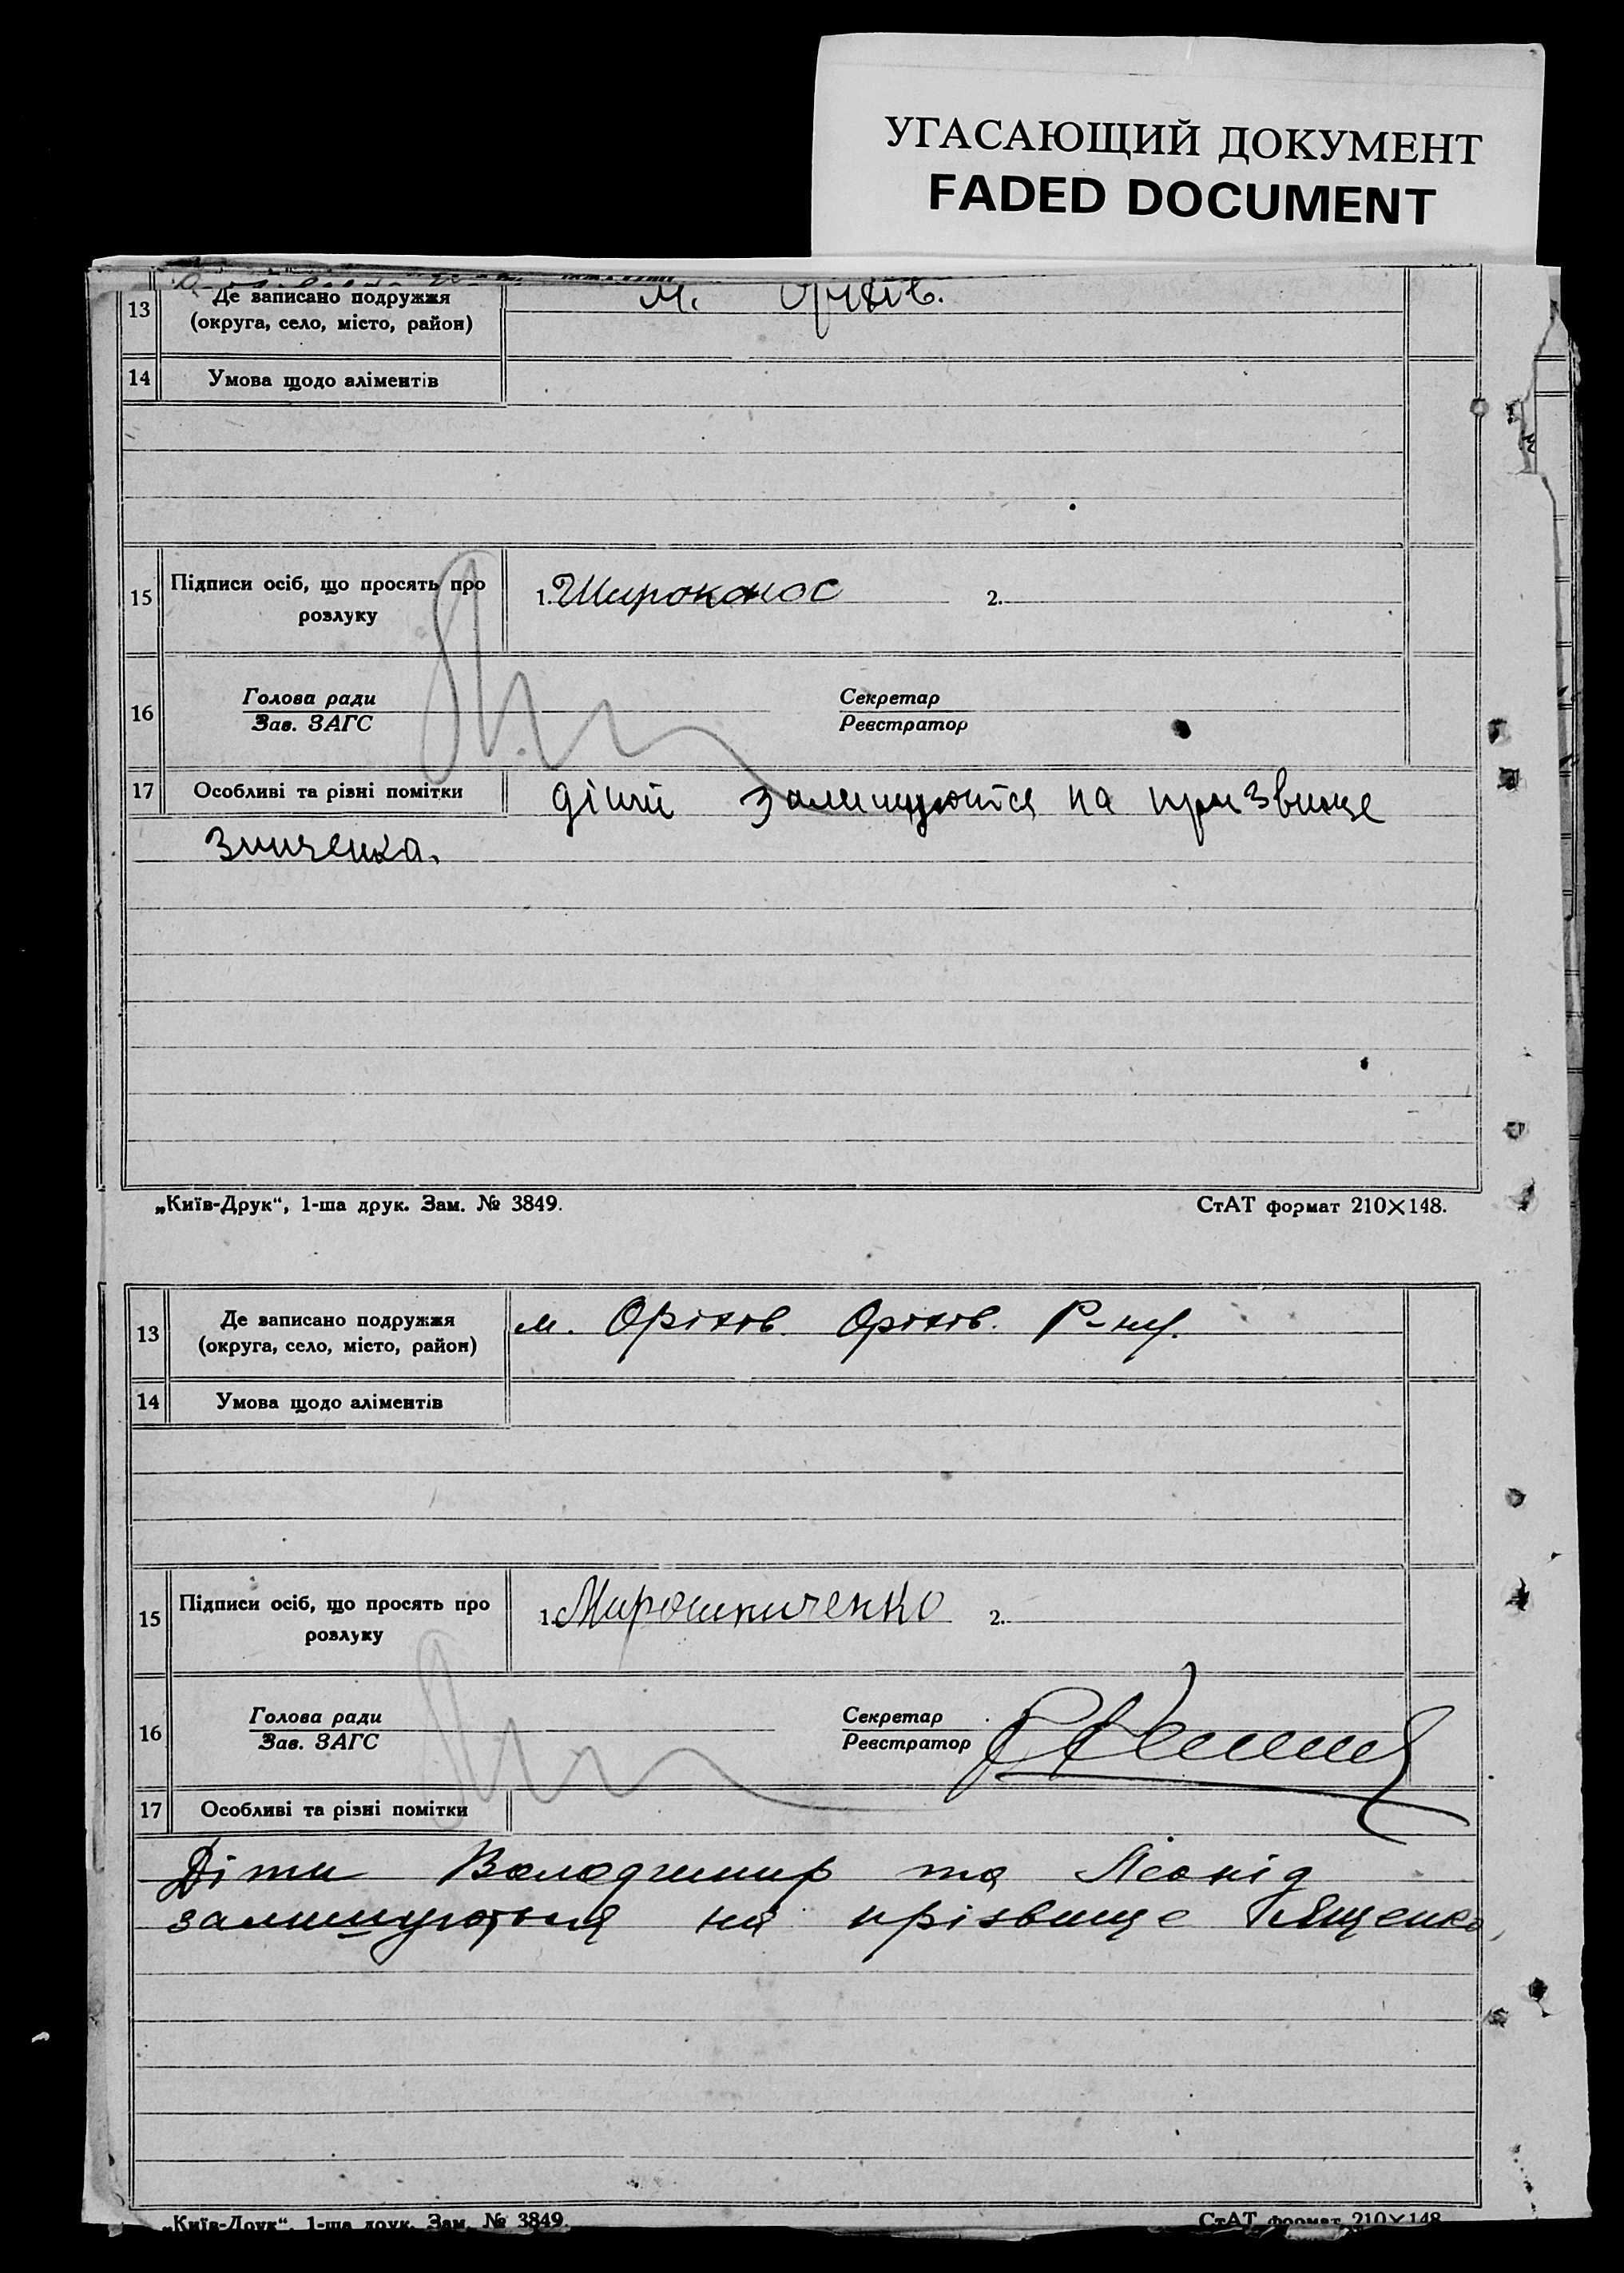 УГАСАЮЩИЙ ДОКУМЕНТ
FADED DOCUMENT
13 Де записано подружжя м. Оріхів.
(округа, село, місто, район)
14 Умова щодо аліментів
15 Підписи осіб, що просять про 1. Широконос 2.
розлуку
16 Голова ради Секретар
Зав. ЗАГС Реєстратор
17 Особливі та різні помітки діти залишуютися на призвище
Зинченка.
„Київ-Друк“, 1-ша друк. Зам. № 3849. СтАТ формат 210×148.
13 Де записано подружжя м. Оріхів. Оріхів. Р-ну.
(округа, село, місто, район)
14 Умова щодо аліментів
15 Підписи осіб, що просять про 1. Мирошниченко 2.
розлуку
16 Голова ради Секретар
Зав. ЗАГС Реєстратор
17 Особливі та різні помітки
Діти Володимир та Леонід
залишуються на прізвище Ященко
„Київ-Друк“, 1-ша друк. Зам. № 3849. СтАТ формат 210×148